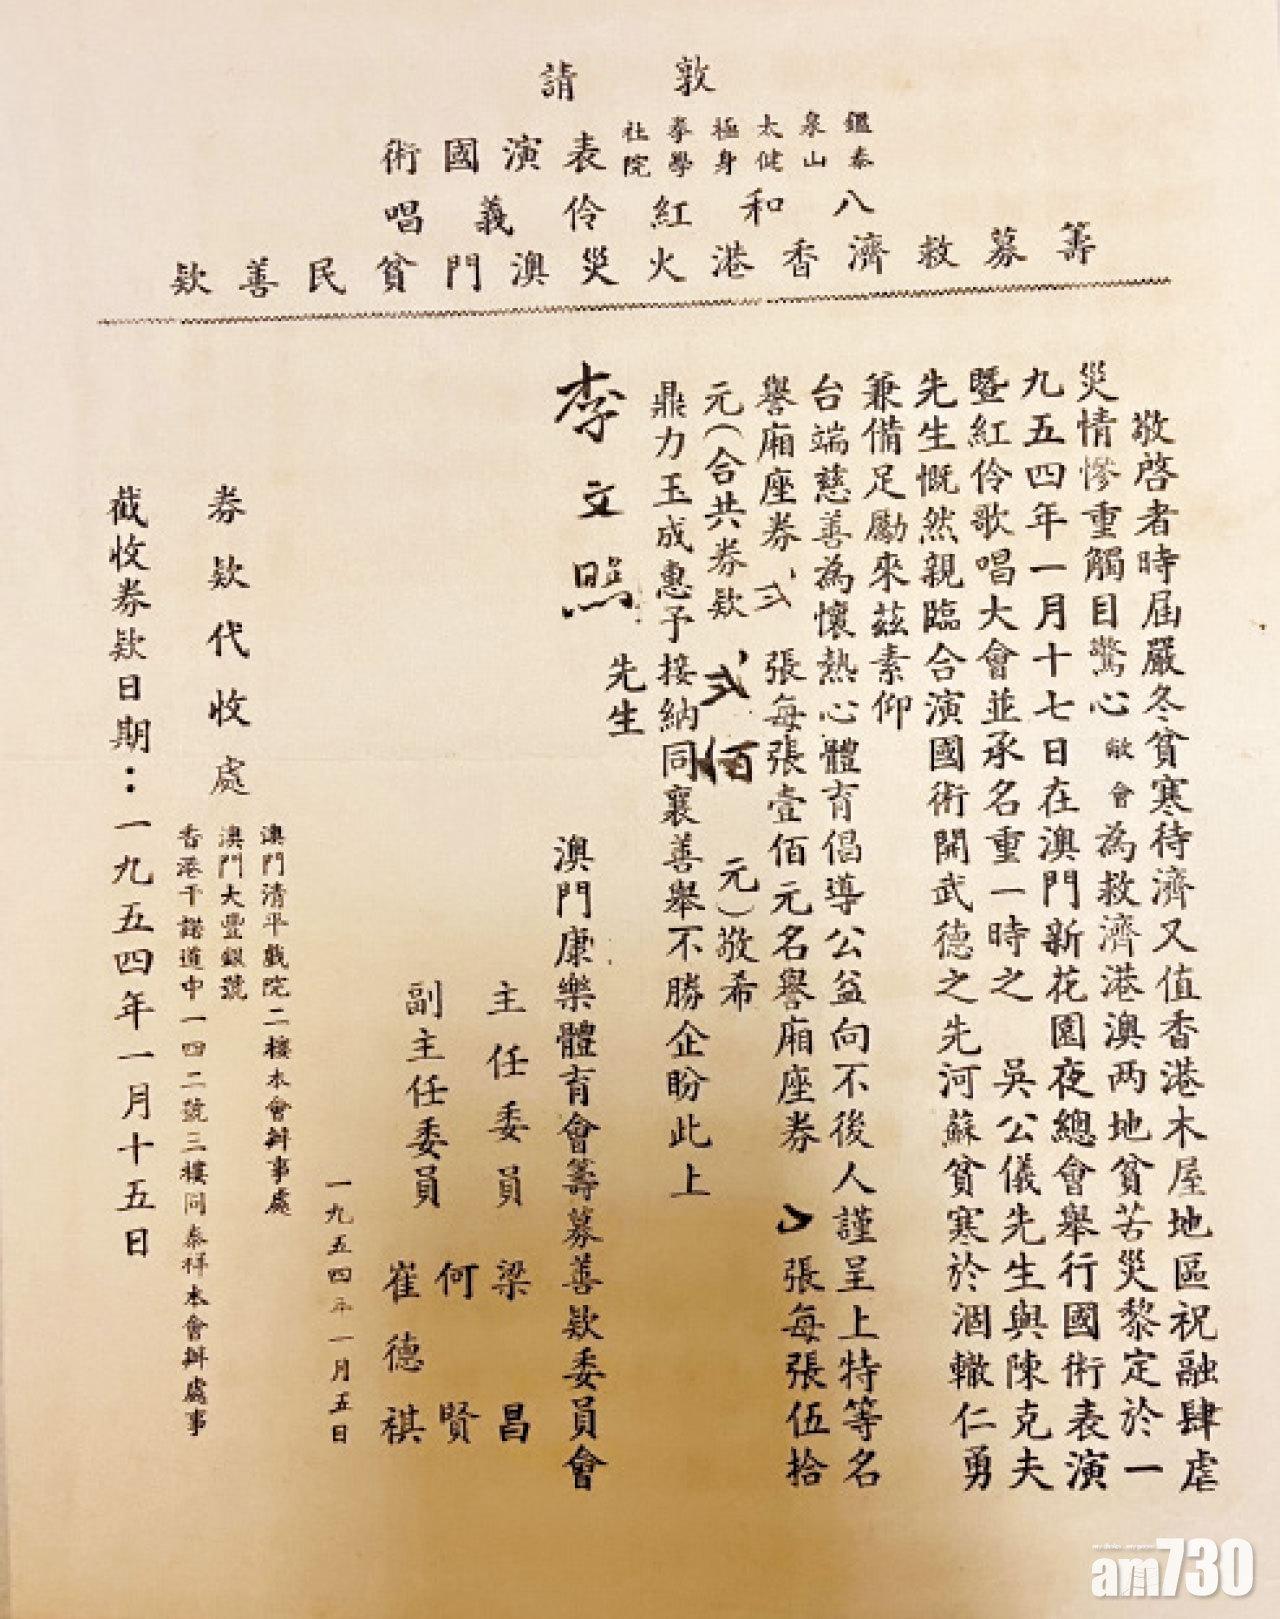 敦請
鑑泉太極拳社
泰山健身學院
表演國術
八和紅伶義唱
籌募救濟香港火災澳門貧民善欵
敬啓者時屆嚴冬貧寒待濟又值香港木屋地區祝融肆虐
災情慘重觸目驚心敝會為救濟港澳兩地貧苦災黎定於一
九五四年一月十七日在澳門新花園夜總會舉行國術表演
暨紅伶歌唱大會並承名重一時之 吳公儀先生與陳克夫
先生慨然親臨合演國術開武德之先河蘇貧寒於涸轍仁勇
兼備足勵來茲素仰
台端慈善為懷熱心體育倡導公益向不後人謹呈上特等名
譽廂座券弍張每張壹佰元名譽廂座券 張每張伍拾
元(合共券欵弍佰元)敬希
鼎力玉成惠予接納同襄善舉不勝企盼此上
李文照先生
澳門康樂體育會籌募善欵委員會
主任委員 梁昌
副主任委員 何賢
崔德祺
一九五四年一月五日
券欵代收處
澳門清平戲院二樓本會辦事處
澳門大豐銀號
香港干諾道中一四二號三樓同泰祥本會辦處事
截收券欵日期：一九五四年一月十五日
am730